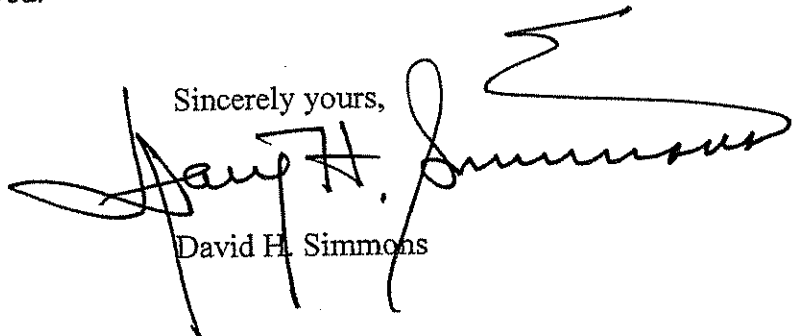 Sincerely yours,
David H. Simmons
David H. Simmons